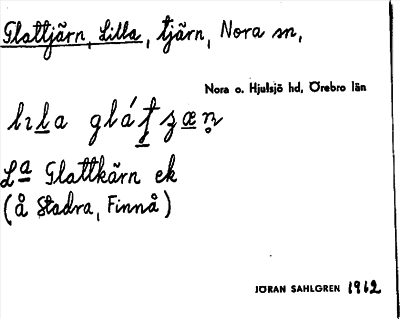 Glattjärn, Lilla, tjärn, Nora sn,
Nora o. Hjulsjö hd, Örebro län
La Glattkärn ek
(å Stadra, Finnå)
JÖRAN SAHLGREN 1912